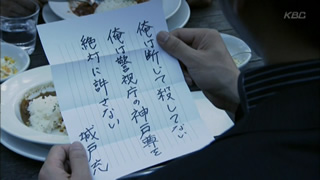 俺は断じて殺してない
俺は警視庁の神戸尊を
絶対に許さない
城戸充
KBC